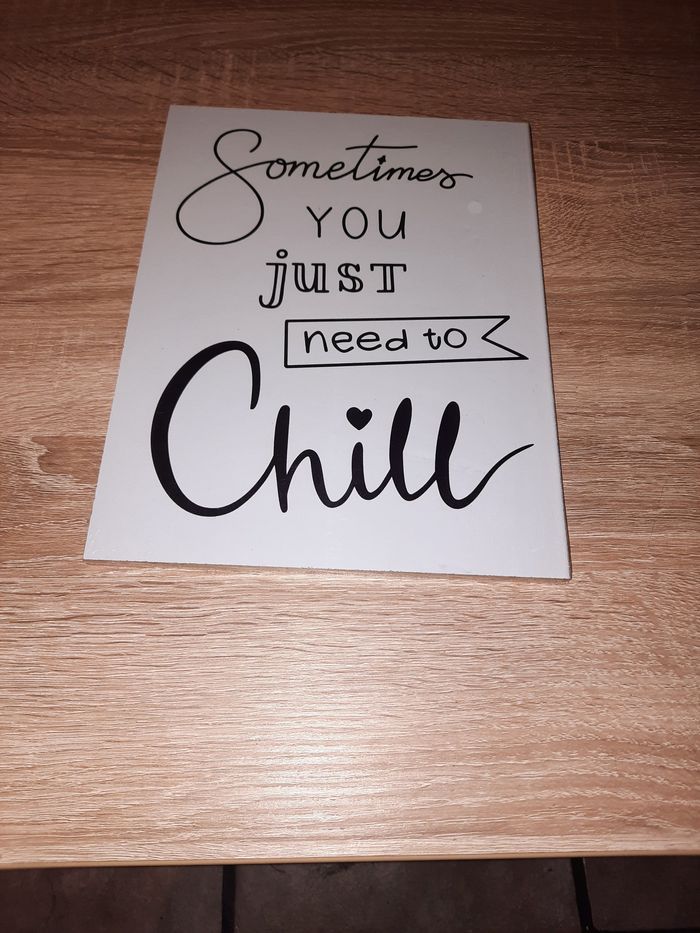 Sometimes
YOU
just
need to
Chill